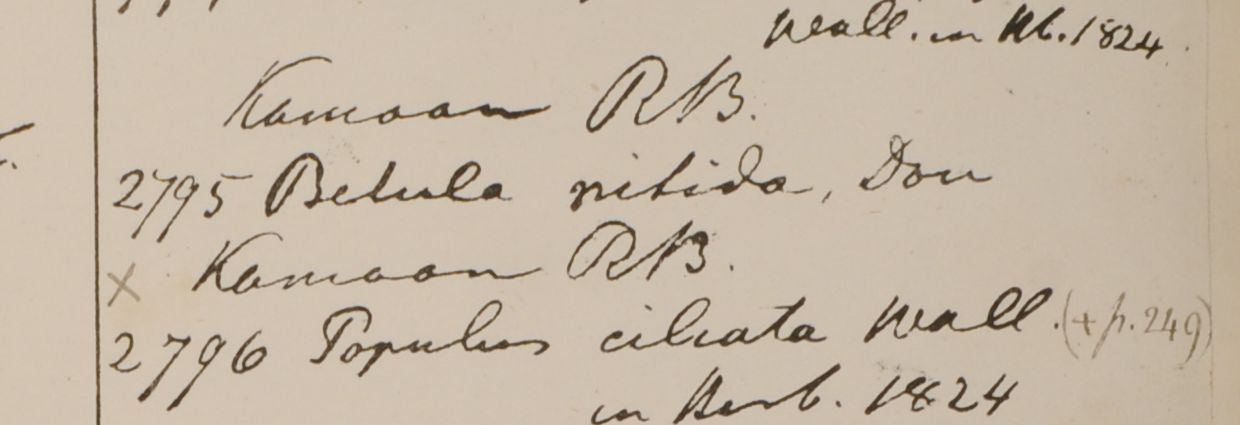 Wall. in Hb. 1824.
Kamaon RB.
2795 Betula nitida, Don
x Kamaon RB.
2796 Populus ciliata Wall. (+ p. 249)
in Herb. 1824